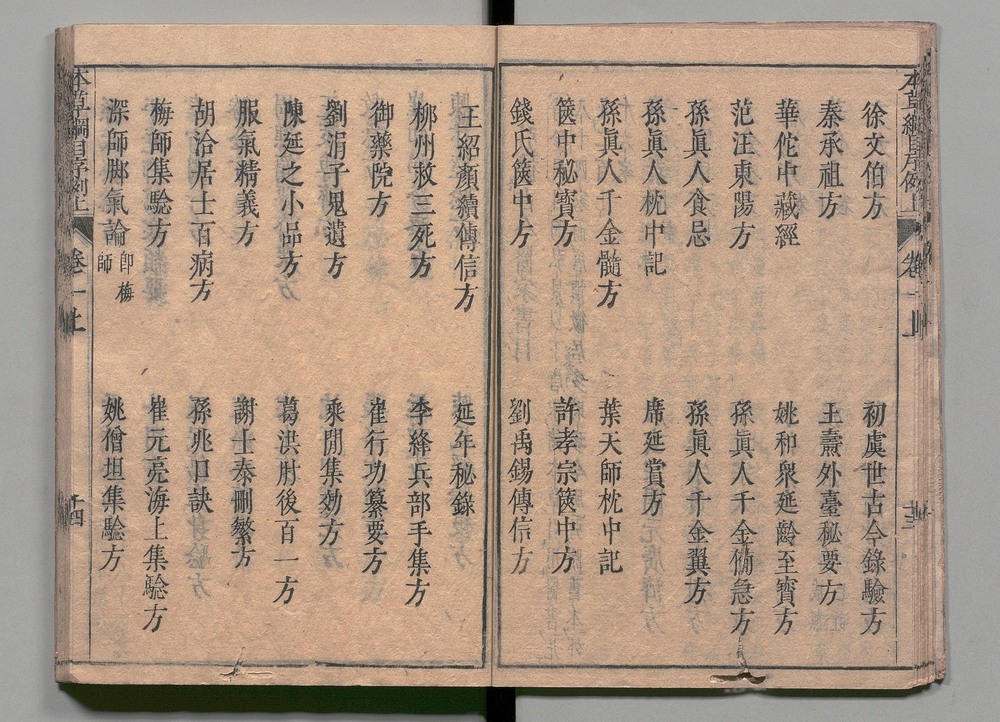 徐文伯方　初虞世古今錄驗方
秦承祖方　王燾外臺秘要方
華佗中藏經　姚和衆延齡至寳方
范汪東陽方　孫眞人千金備急方
孫眞人食忌　孫眞人千金翼方
孫眞人枕中記　席延賞方
孫眞人千金髓方　葉天師枕中記
篋中秘寳方　許孝宗篋中方
錢氏篋中方　劉禹錫傳信方
王紹顏續傳信方　延年秘錄
柳州救三死方　李絳兵部手集方
御藥院方　崔行功纂要方
劉涓子鬼遺方　乘閒集効方
陳延之小品方　葛洪肘後百一方
服氣精義方　謝士泰刪繁方
胡洽居士百病方　孫兆口訣
梅師集騐方　崔元亮海上集騐方
深師脚氣論 卽梅師　姚僧垣集騐方
本草綱目序例上　卷一上　十三
本草綱目序例上　卷一上　十四